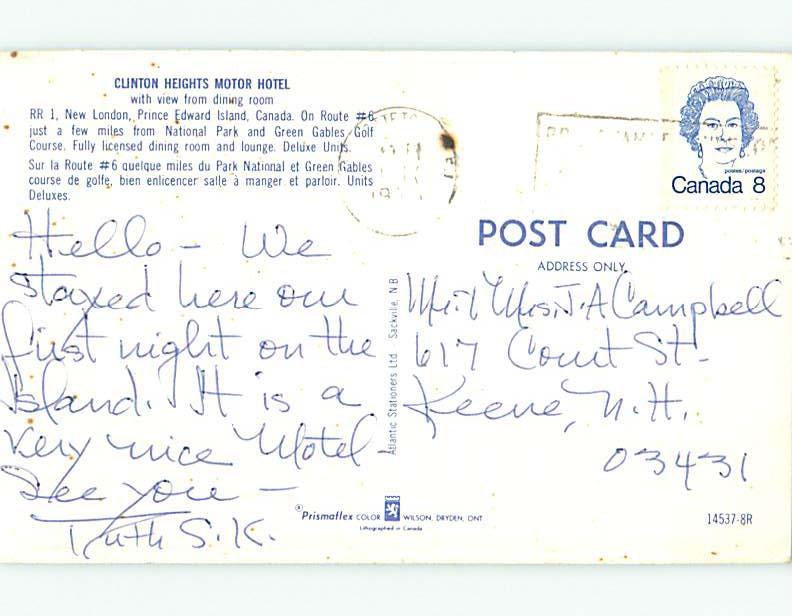 CLINTON HEIGHTS MOTOR HOTEL
with view from dining room
RR 1, New London, Prince Edward Island, Canada. On Route #6
just a few miles from National Park and Green Gables Golf
Course. Fully licensed dining room and lounge. Deluxe Units.
Sur la Route #6 quelque miles du Park National et Green Gables
course de golfe, bien enlicencer salle à manger et parloir. Units
Deluxes.
Hello - We
stayed here our
first night on the
Island. It is a
very nice Motel -
See you -
Ruth S.K.
postes/postage
Canada 8
POST CARD
ADDRESS ONLY
Mr. & Mrs. J. A Campbell
617 Court St.
Keene, N.H.
03431
Atlantic Stationers Ltd. Sackville, N.B
®Prismaflex COLOR WILSON, DRYDEN, ONT
Lithographed in Canada
14537-8R